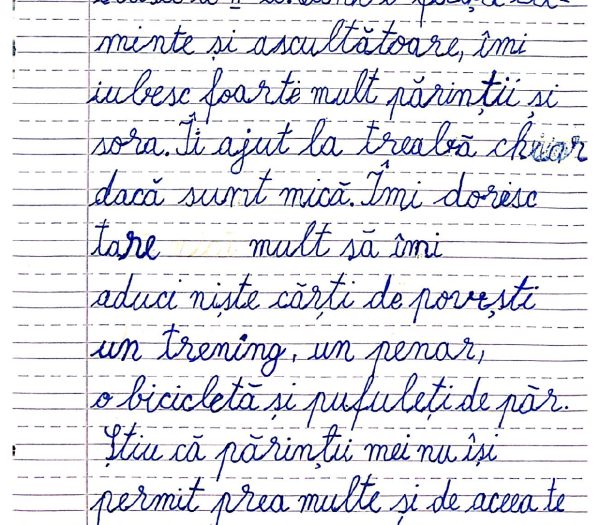 minte și ascultătoare, îmi
iubesc foarte mult părinții și
sora. Îi ajut la treabă chiar
dacă sunt mică. Îmi doresc
tare mult să îmi
aduci niște cărți de povești
un trening, un penar,
o bicicletă și pufuleți de păr.
Știu că părinții mei nu își
permit prea multe și de aceea te